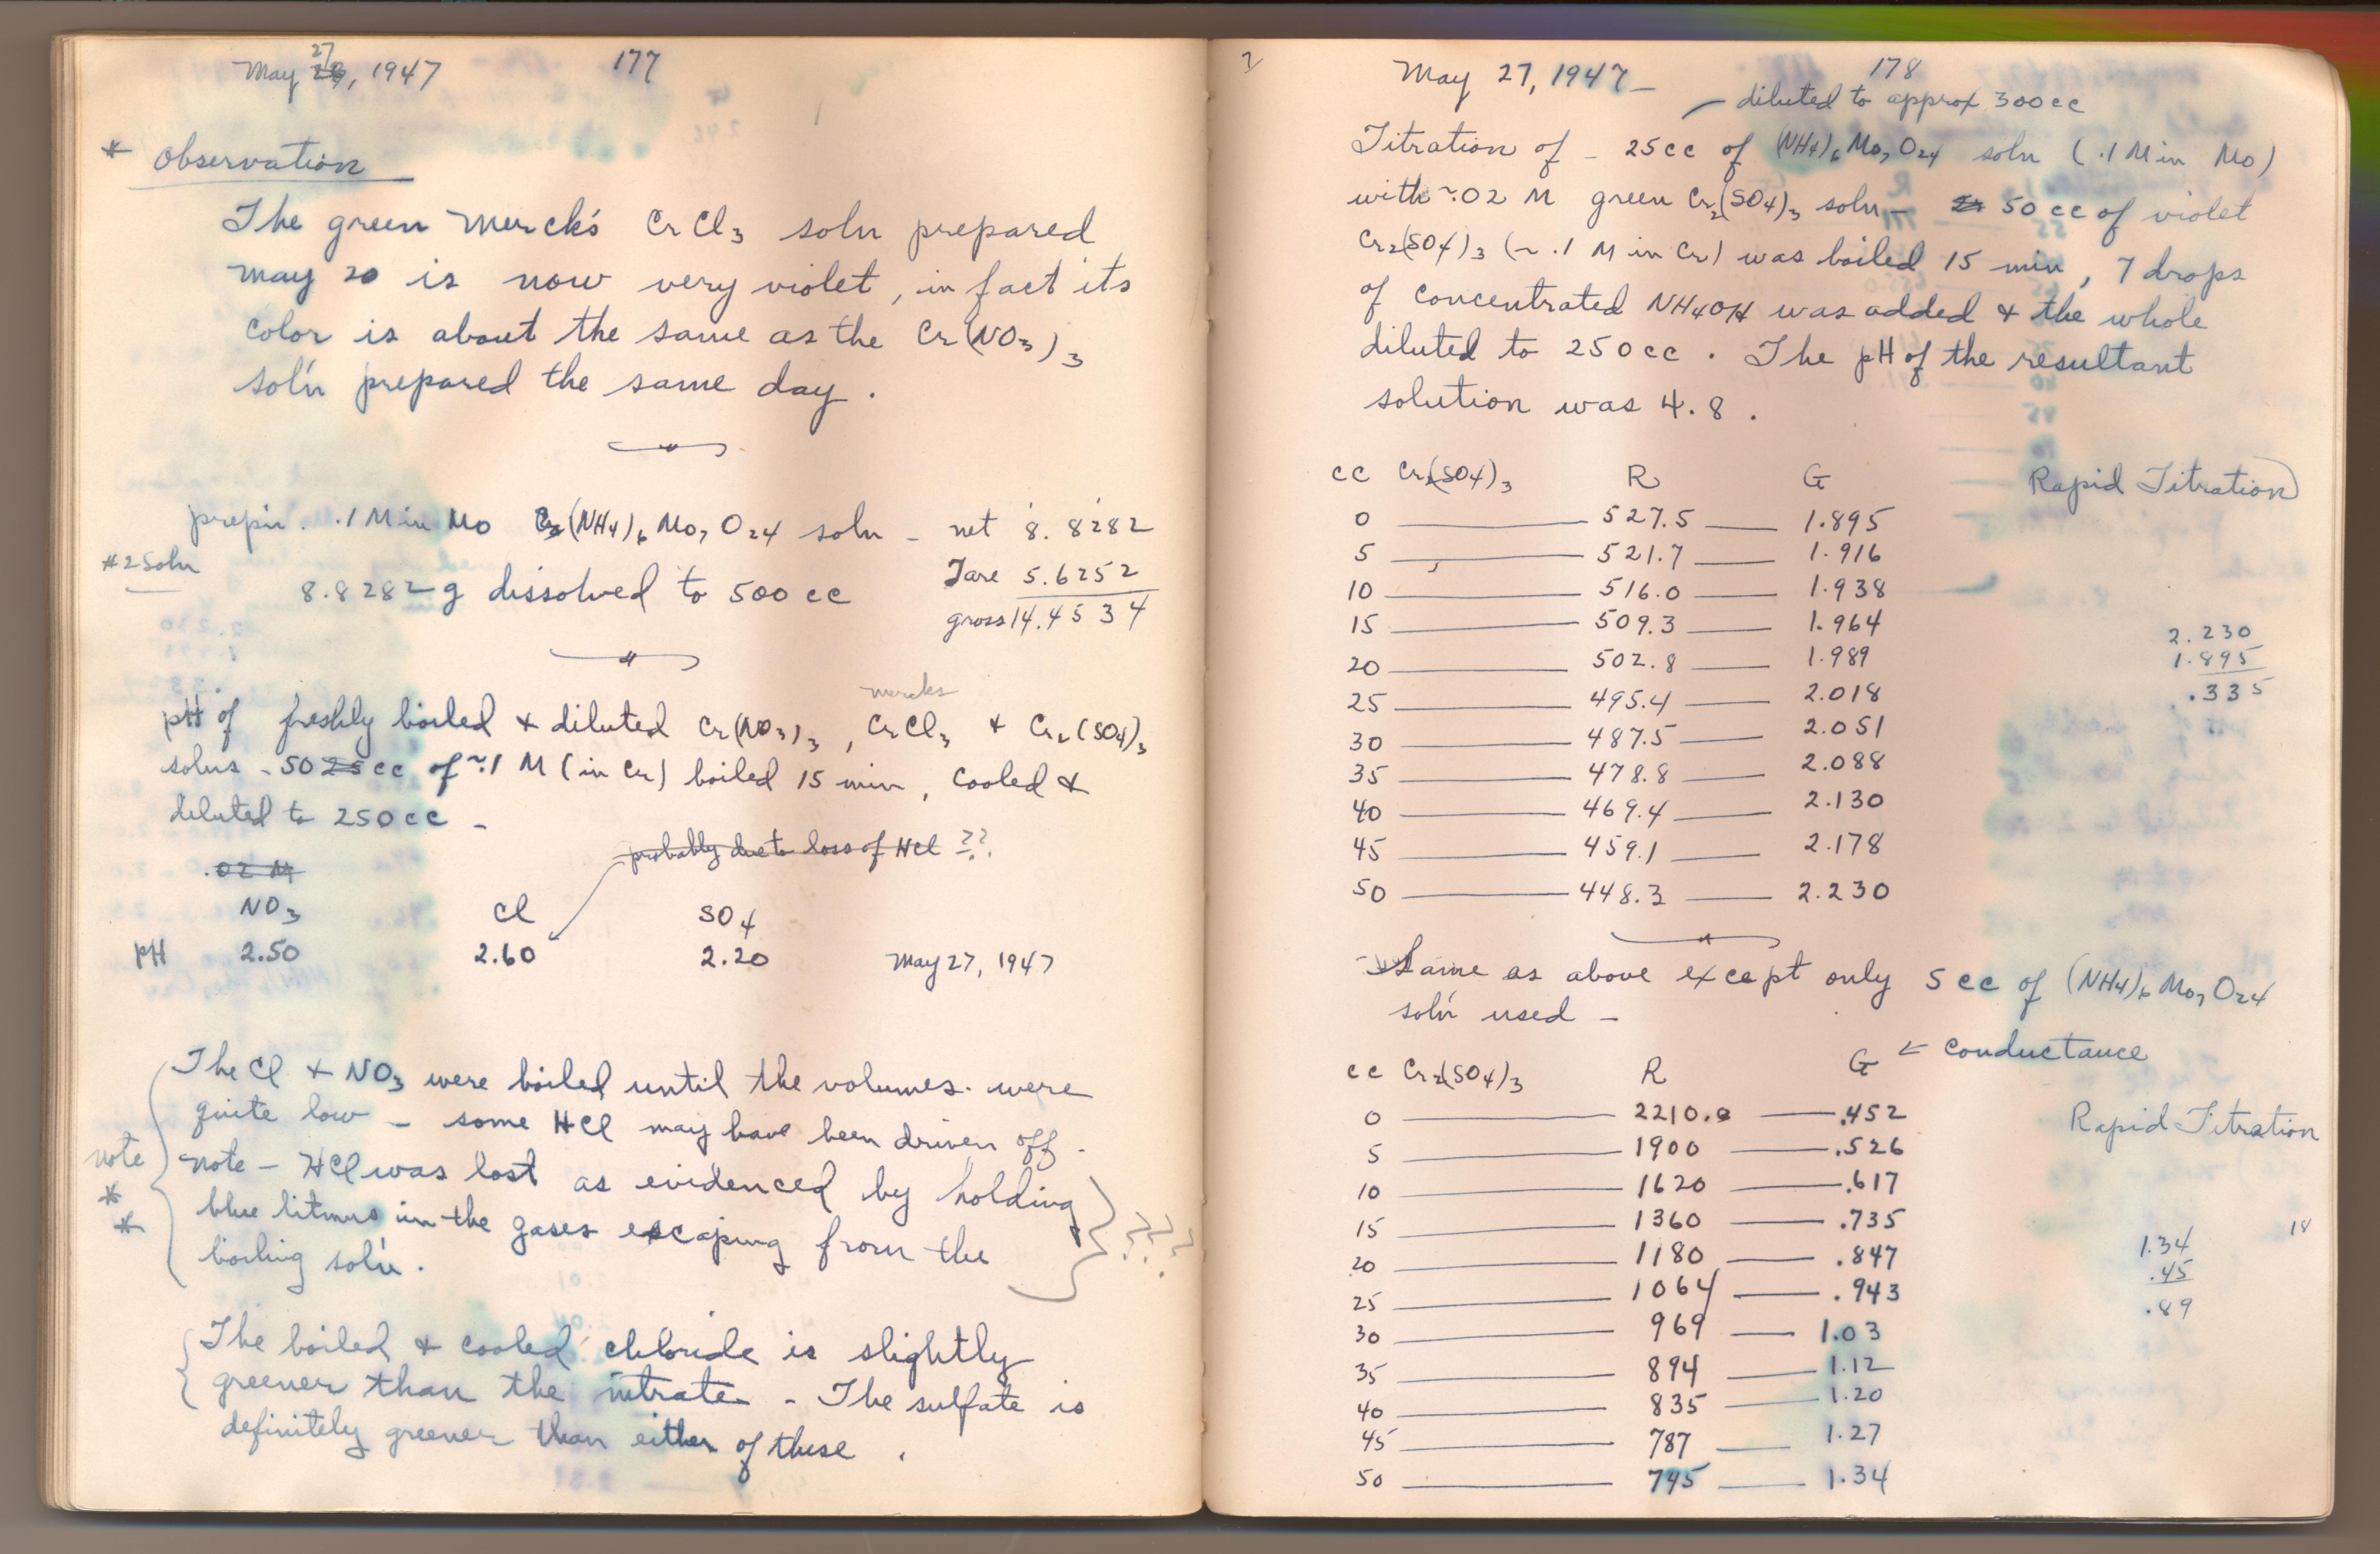 May 27, 1947 177
* Observation
The green Merck's CrCl3 soln prepared
May 20 is now very violet, in fact its
color is about the same as the Cr(NO3)3
sol'n prepared the same day.
prep'n. .1 M in Mo (NH4)6 Mo7 O24 soln - net 8.8282
#2 Soln
Tare 5.6252
8.8282 g dissolved to 500 cc
gross 14.4534
mercks
pH of freshly boiled + diluted Cr(NO3)3, CrCl3 + Cr2(SO4)3
solns - 50 25 cc of ~.1 M (in Cr) boiled 15 min, cooled +
diluted to 250 cc -
probably due to loss of HCl ??
.02 M
NO3 Cl SO4
pH 2.50 2.60 2.20 May 27, 1947
The Cl + NO3 were boiled until the volumes were
quite low - some HCl may have been driven off.
note - HCl was lost as evidenced by holding
note
* *
blue litmus in the gases escaping from the
boiling sol'n.
???
The boiled + cooled chloride is slightly
greener than the nitrate - The sulfate is
definitely greener than either of these.
2
May 27, 1947 - 178
diluted to approx 300 cc
Titration of - 25 cc of (NH4)6 Mo7 O24 soln (.1 M in Mo)
with ~.02 M green Cr2(SO4)3 soln - 50 cc of violet
Cr2(SO4)3 (~ .1 M in Cr) was boiled 15 min, 7 drops
of concentrated NH4OH was added + the whole
diluted to 250 cc. The pH of the resultant
solution was 4.8.
cc Cr2(SO4)3 R G Rapid Titration
0 527.5 1.895
5 521.7 1.916
10 516.0 1.938
15 509.3 1.964
20 502.8 1.989
25 495.4 2.018
30 487.5 2.051
35 478.8 2.088
40 469.4 2.130
45 459.1 2.178
50 448.3 2.230
2.230
1.895
.335
Same as above except only 5 cc of (NH4)6 Mo7 O24
sol'n used -
cc Cr2(SO4)3 R G ← conductance
Rapid Titration
0 2210.0 .452
5 1900 .526
10 1620 .617
15 1360 .735
20 1180 .847
25 1064 .943
30 969 1.03
35 894 1.12
40 835 1.20
45 787 1.27
50 745 1.34
18
1.34
.45
.89